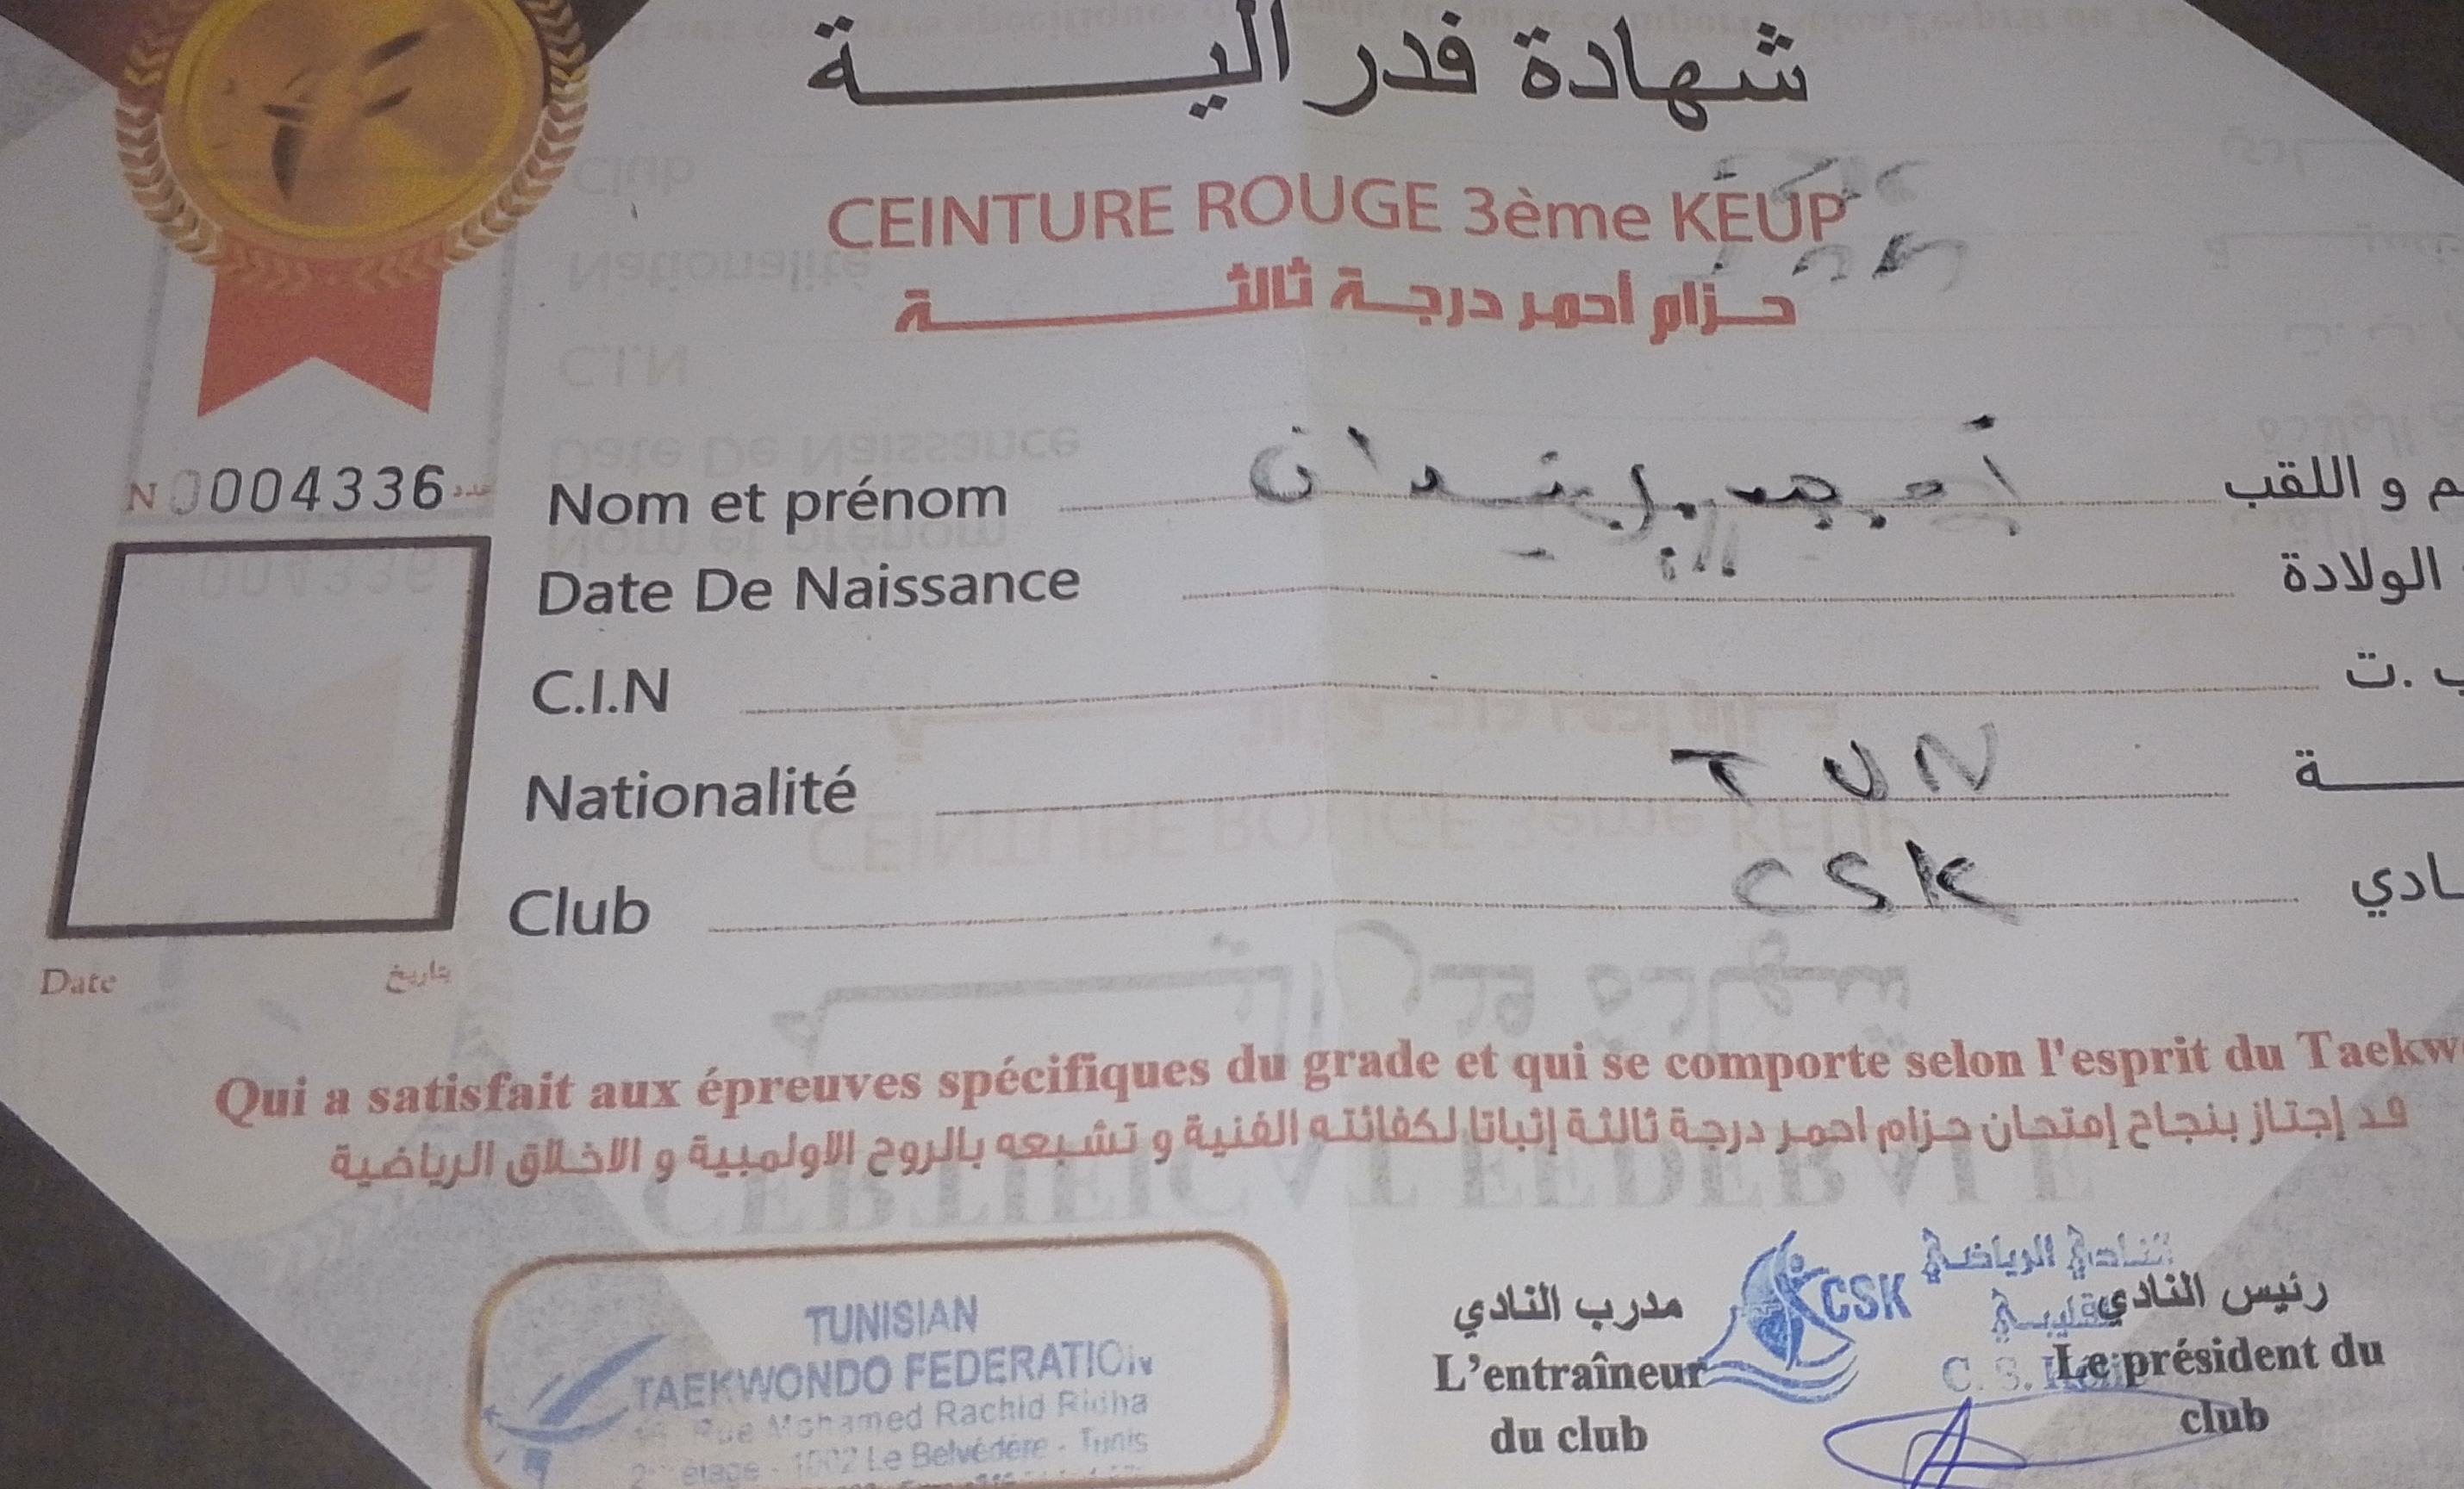 شهادة فدرالية
CEINTURE ROUGE 3ème KEUP
حزام أحمر درجة ثالثة
N 0004336 عدد
Nom et prénom م و اللقب
Date De Naissance الولادة
C.I.N ب .ت
Nationalité TUN ة
Club CSK ادي
Date تاريخ
Qui a satisfait aux épreuves spécifiques du grade et qui se comporte selon l'esprit du Taekw
قد إجتاز بنجاح إمتحان حزام احمر درجة ثالثة إثباتا لكفائته الفنية و تشبعه بالروح الاولمبية و الاخلاق الرياضية
TUNISIAN
TAEKWONDO FEDERATION
Rue Mohamed Rachid Ridha
2ème étage - 1002 Le Belvédère - Tunis
مدرب النادي
L'entraîneur
du club
CSK
النادي الرياضي
بقليبية
رئيس النادي
Le président du
club